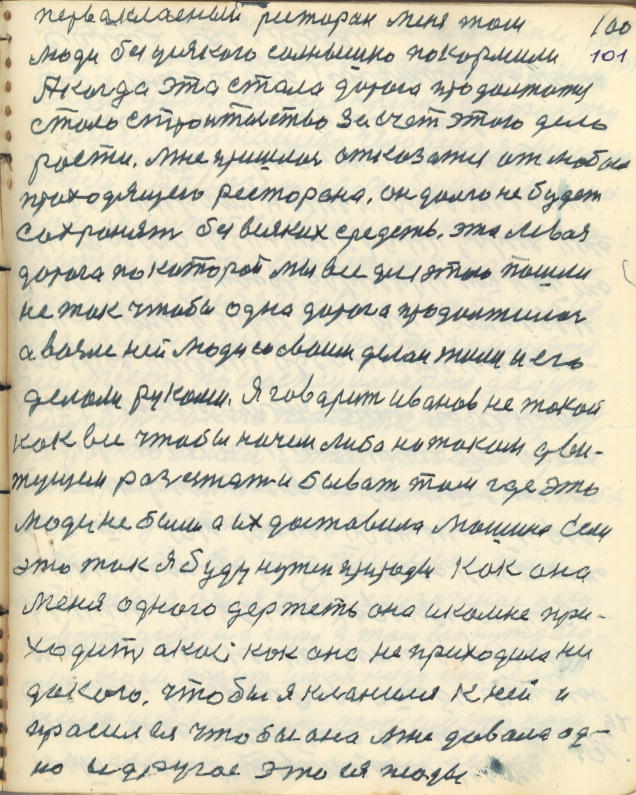 первакласный ресторан меня там 100
люди без усякого солнышко покормили 101
А когда эта стала дорога продолжатся
стало строительство За счет этого дело
рости. Мне пришлося отказатся от любого
проходящего ресторана. он долго не будет
сохронят без всяких средств. эта левая
дорога по которой мы все для этого пошли
не так чтобы одна дорога продолжилася
а возле ней люди со своим делам жили и его
делали руками. Я говарит иванов не такой
как все чтобы на чем либо на таком дви-
жущем разежат и быват там где это
люди не были а их доставила Машина Если
это так я буду нужен природы Как она
меня одного держеть она и ко мне при-
ходит, а как она не приходила ни
до кого, чтобы я кланился к ней и
прасился чтобы она мне давала од-
но и другое это ся жоды